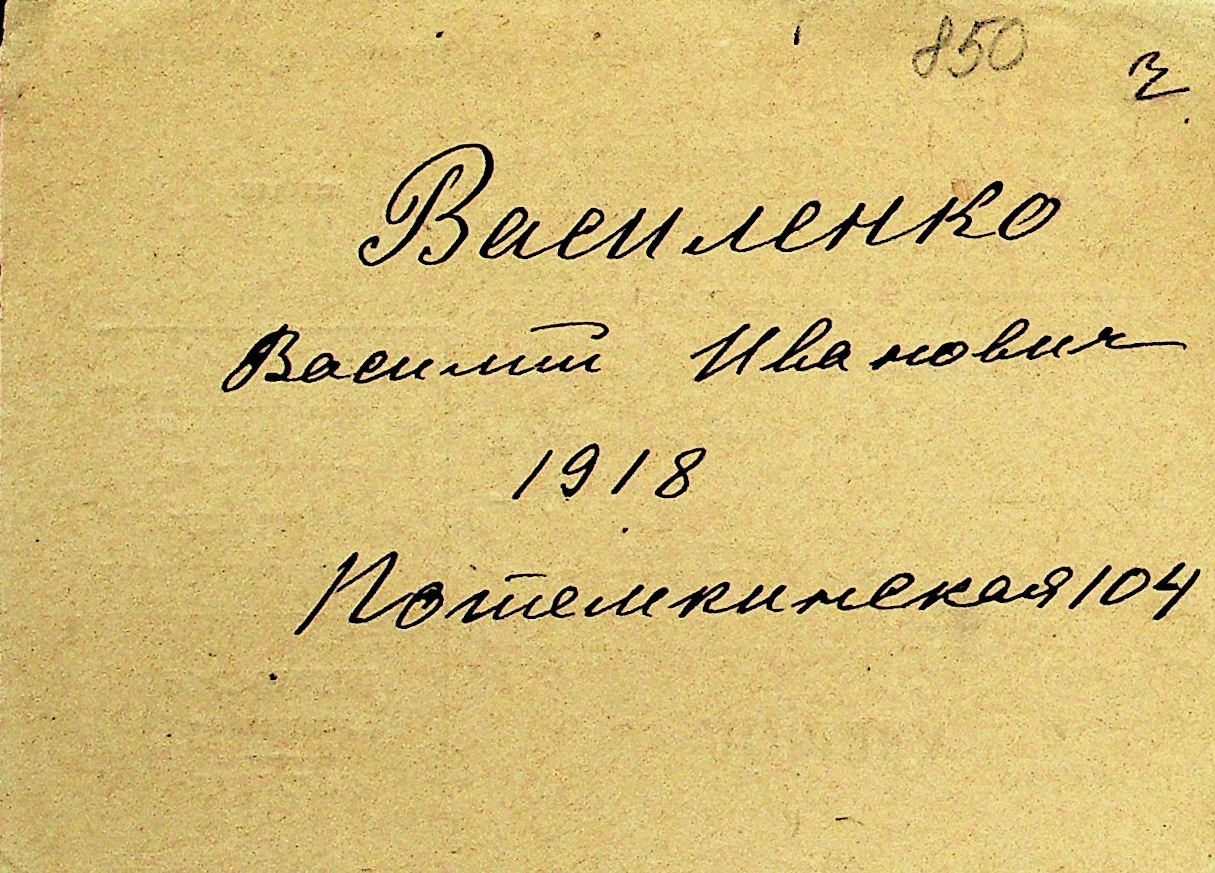 850
Василенко
Василий Иванович
1918
Потемкинская 104